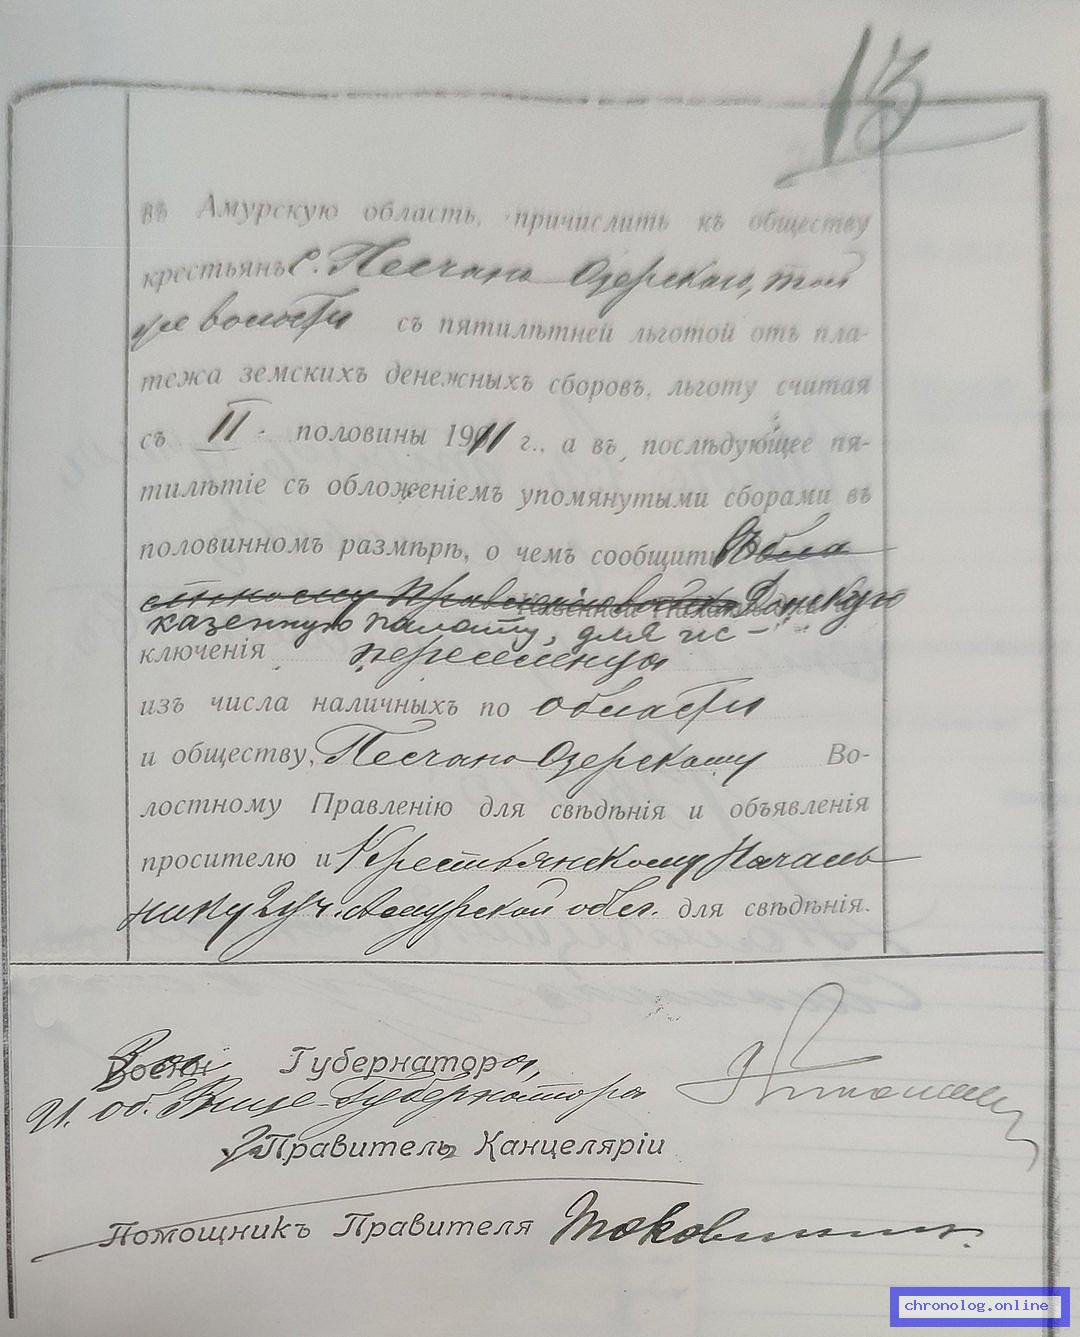 13
въ Амурскую область, причислить къ обществу
крестьянъ с. Песчано Озерскаго, той
же волости съ пятилѣтней льготой отъ пла-
тежа земскихъ денежныхъ сборовъ, льготу считая
съ II половины 1911 г., а въ послѣдующее пя-
тилѣтіе съ обложеніемъ упомянутыми сборами въ
половинномъ размѣрѣ, о чемъ сообщить
Донскую
казенную палату, для ис-
ключенія переселенца
изъ числа наличныхъ по области
и обществу, Песчано-Озерскому Во-
лостному Правленію для свѣдѣнія и объявленія
просителю и Крестьянскому Началь
нику 2 уч. Амурской обл. для свѣдѣнія.
За Губернатора,
И. об. Вице-Губернатора
Правитель Канцеляріи
Помощникъ Правителя
chronolog.online